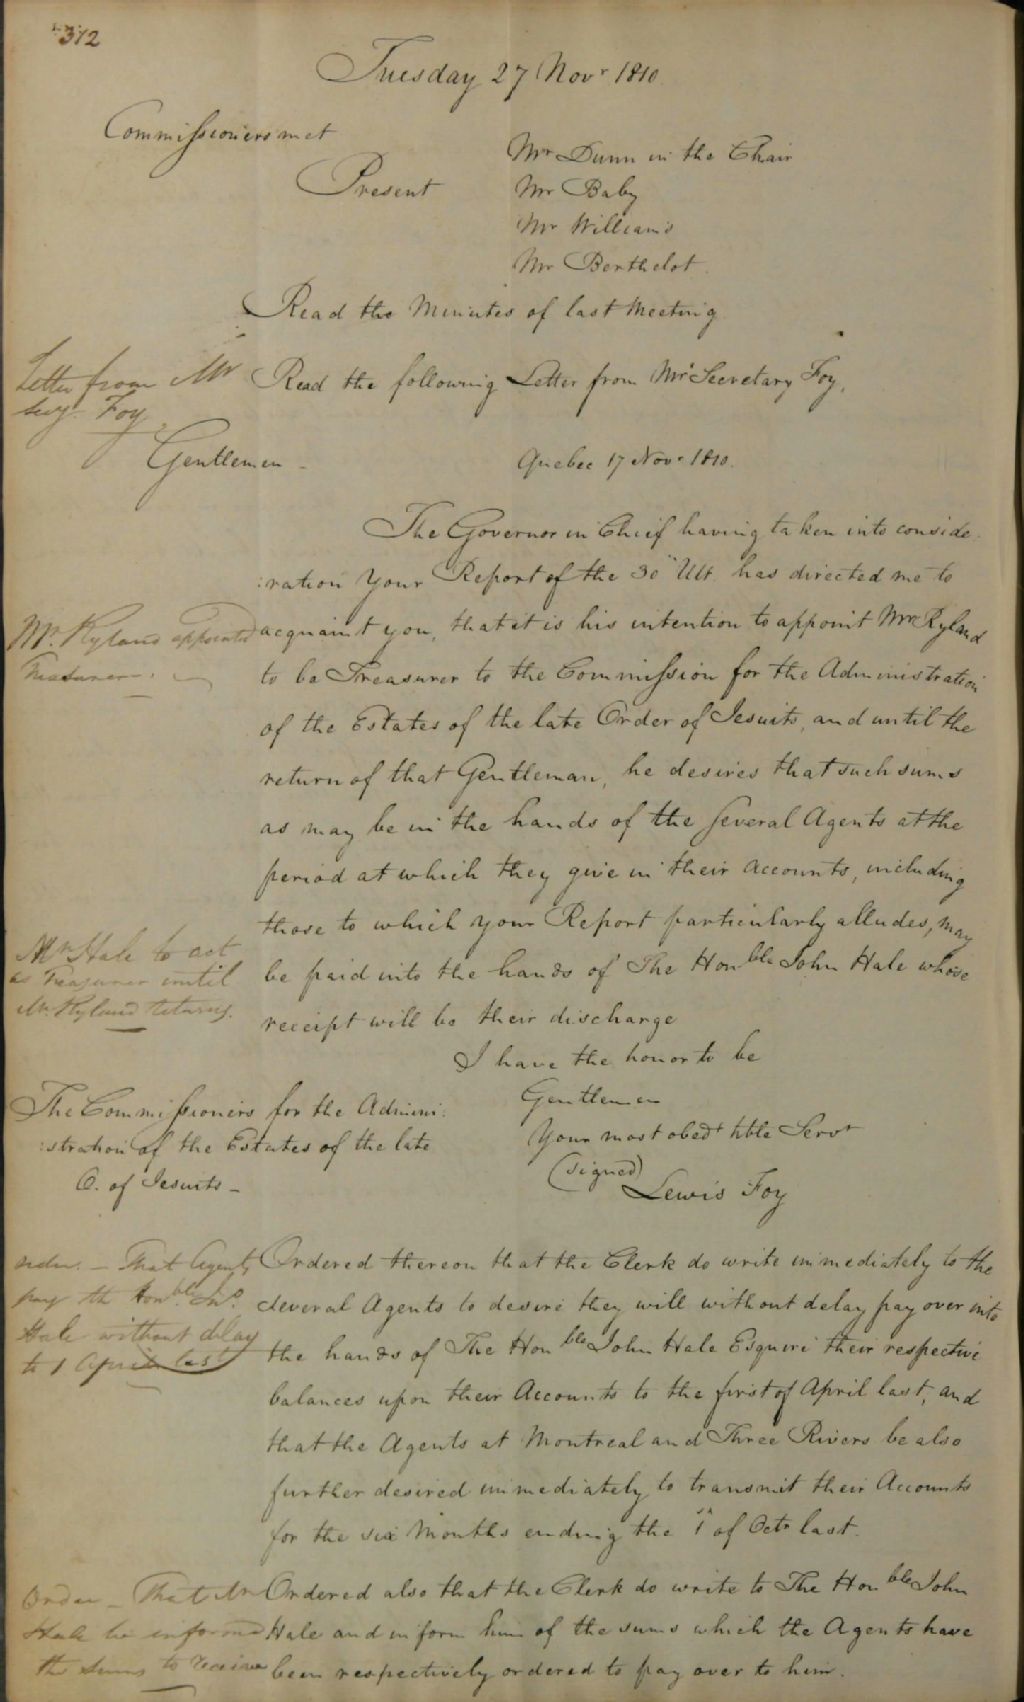 312
Tuesday 27 Novr 1810.
Commissioners met
Present
Mr Dunn in the Chair
Mr Baby
Mr Williams
Mr Berthelot.
Read the Minutes of last Meeting.
Letter from Mr
Secy. Foy.
Read the following Letter from Mr Secretary Foy,
Gentlemen - Quebec 17 Novr 1810.
The Governor in Chief having taken into conside-
:ration Your Report of the 30th Ult. has directed me to
Mr. Ryland appointed
Treasurer.
acquaint you, that it is his intention to appoint Mr Ryland
to be Treasurer to the Commission for the Administration
of the Estates of the late Order of Jesuits, and until the
return of that Gentleman, he desires that such sums
as may be in the hands of the several Agents at the
period at which they give in their Accounts, including
those to which your Report particularly alludes, may
Mr Hale to act
as Treasurer until
Mr. Ryland returns.
be paid into the hands of The Honble John Hale whose
receipt will be their discharge
I have the honor to be
Gentlemen
Your most obedt hble Servt
(signed)
Lewis Foy
The Commissioners for the Admini:
:stration of the Estates of the late
O. of Jesuits -
order. - That Agents
pay the Honble. Jno.
Hale without delay
to 1 April last
Ordered thereon that the Clerk do write immediately to the
several Agents to desire they will without delay pay over into
the hands of The Honble John Hale Esquire their respective
balances upon their Accounts to the first of April last, and
that the Agents at Montreal and Three Rivers be also
further desired immediately to transmit their Accounts
for the six Months ending the 1st of Octr last.
Order - That Mr
Hale be informed
the sums to receive
Ordered also that the Clerk do write to The Honble John
Hale and inform him of the sums which the Agents have
been respectively ordered to pay over to him.